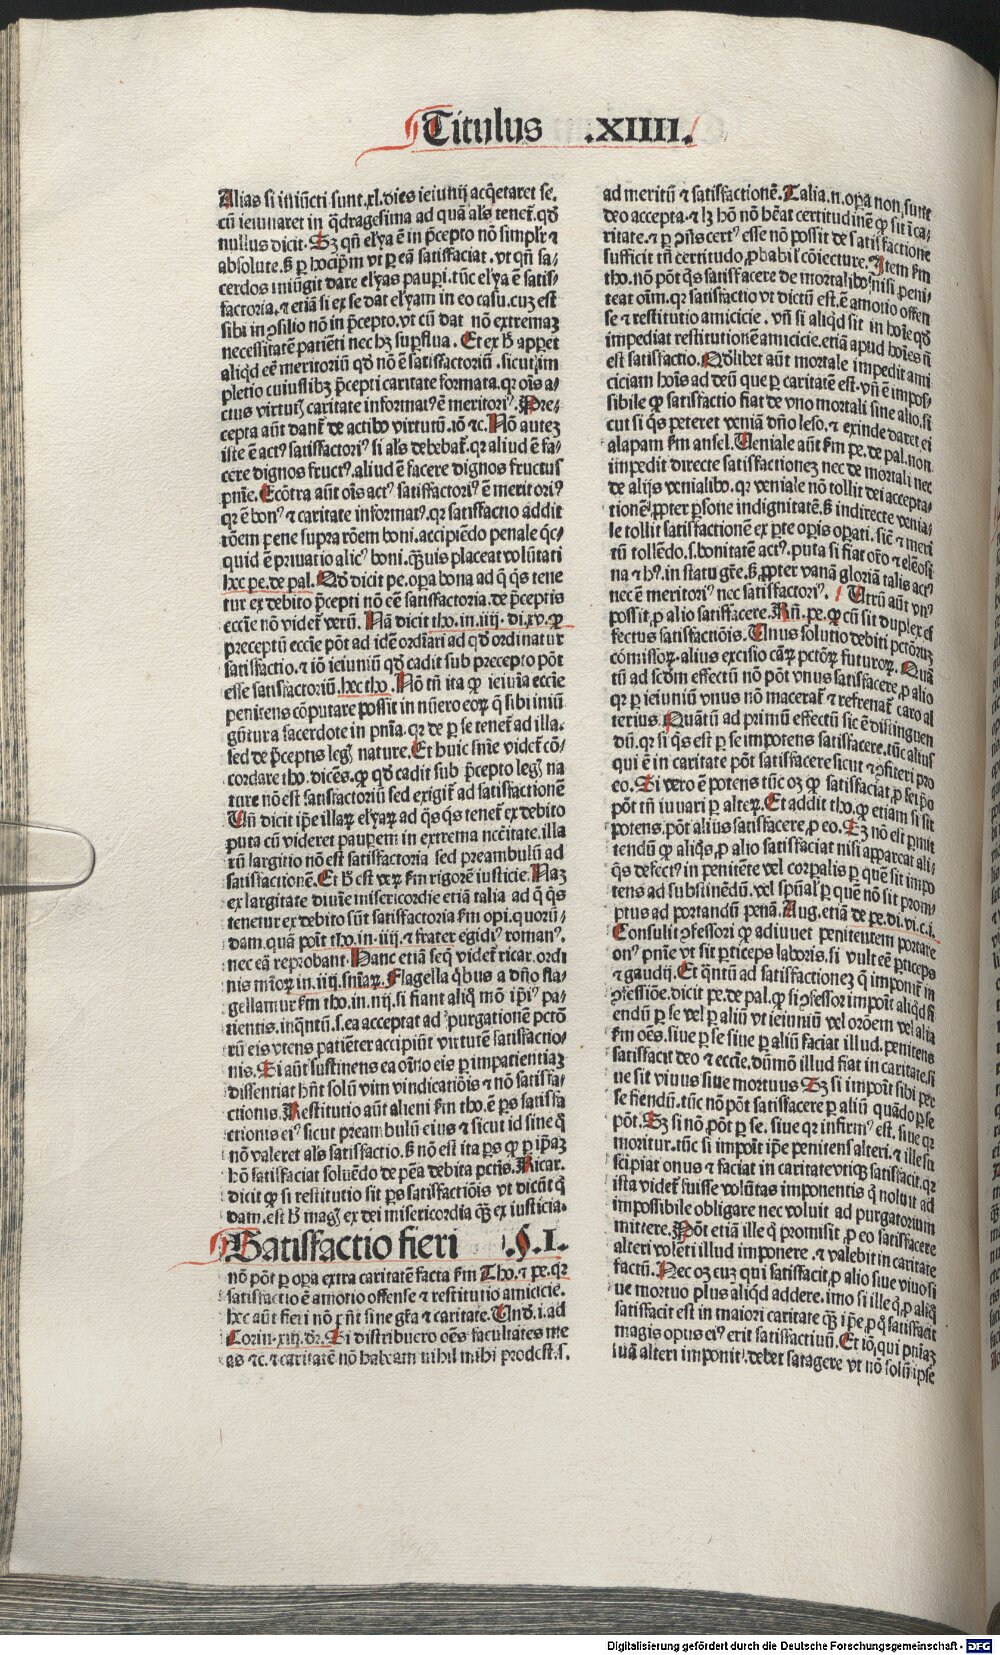 Titulus .XIIII.
Alias si iniūcti sunt .xl. dies ieiunij acq̄retaret se.
cū ieiunaret in q̄dragesima ad quā al's tenet̄. qd̄
nullus dicit. Sz qn̄ el'ya ē in p̄cepto nō simpl'r ⁊
absolute. ß ꝑ hoc ip̄m vt ꝑ eā satisfaciat. vt qn̄ sa-
cerdos iniūgit dare el'yas pauꝑi. tūc el'ya ē satis-
factoria. ⁊ etiā si ex se dat el'yam in eo casu. cuz est
sibi in ꝯsilio nō in p̄cepto. vt cū dat nō extremaz
necessitatē patiēti nec hz suꝑflua. Et ex ß apparet
aliqd eē meritoriū qd̄ nō ē satisfactoriū. sicut im
pletio cuiuslibz p̄cepti caritate formata. qr ois a-
ctus virtutꝭ caritate informatꝰ ē meritoriꝰ. Pre-
cepta aūt dant̄ de actibꝰ virtutū. iō ⁊c. Nō autez
iste ē actꝰ satisfactoriꝰ si al's debebat̄. qr aliud ē fa-
cere dignos fructꝰ. aliud ē facere dignos fructus
pn̄ie. Ecōtra aūt ois actꝰ satisfactoriꝰ ē meritoriꝰ
qr ē bonꝰ ⁊ caritate informatꝰ. qr satisfactio addit
rōem pene supra rōem boni. accipiēdo penale qc̄-
quid ē priuatio alicꝰ boni. q̄uis placeat volūtati
hec pe. de pal. Qd̄ dicit pe. oꝑa bona ad q̄ q̄s tene
tur ex debito p̄cepti nō eē satisfactoria. de p̄ceptis
eccīe nō videt̄ verū. Nā dicit tho. in. iiij. di. xv. ꝙ
preceptū eccīe pōt ad idē ordiari ad qd̄ ordinatur
satisfactio. ⁊ iō ieiuniū qd̄ cadit sub precepto pōt
esse satisfactoriū. hec tho. Nō tn̄ ita ꝙ ieiunia eccīe
penitens cōputare possit in nūero eoꝝ q̄ sibi iniū
gūtur a sacerdote in pn̄ia. qr de ꝑ se tenet̄ ad illa.
sed de p̄ceptis legꝭ nature. Et huic sn̄ie videt̄ cō-
cordare tho. dicēs. ꝙ qd̄ cadit sub p̄cepto legꝭ na
ture nō est satisfactoriū sed exigit̄ ad satisfactionē
Vn̄ dicit ip̄e illaꝝ el'yaꝝ ad q̄s q̄s tenet̄ ex debito
puta cū videret pauꝑem in extrema nccītate. illa
rū largitio nō est satisfactoria sed preambulū ad
satisfactionē. Et ß est veꝝ ẜm rigorē iusticie. Naz
ex largitate diuīe misericordie etiā talia ad q̄ q̄s
tenetur ex debito sūt satisfactoria ẜm opi. quorū-
dam. quā poīt tho. in. iiij. ⁊ frater egidiꝰ romanꝰ.
nec eā reprobant. Hanc etiā seq̄ videt̄ ricar. ordi
nis mīoꝝ in. iiij. sn̄iaꝝ. Flagella q̄bus a dn̄o fla-
gellamur ẜm tho. in. iiij. si fiant aliq̄ mō ip̄iꝰ pa-
tientis. inq̄ntū. s. ea acceptat ad purgationē pctō
rū eis vtens patiēter accipiūt virtutē satisfactio-
nis. Si aūt sustinens ea oīno eis ꝑ impatientiaz
dissentiat hn̄t solū vim vindicatiōis ⁊ nō satisfa-
ctionis. Restitutio aūt alieni ẜm tho. ē ꝑs satisfa
ctionis eiꝰ sicut preambulū eius ⁊ sicut id sine q̄
nō valeret al's satisfactio. ß nō est ita ꝑs ꝙ ꝑ ip̄az
hō satisfaciat soluēdo de pēa debita pctīs. Ricar.
dicit ꝙ si restitutio sit ꝑs satisfactiōis vt dicūt q̄
dam. est ß magꝭ ex dei misericordia q̄ꝫ ex iusticia.
Satisfactio fieri .§.I.
nō pōt ꝑ oꝑa extra caritatē facta ẜm Tho. ⁊ pe. qr
satisfactio ē amotio offense ⁊ restitutio amicicie.
hec aūt fieri nō pn̄t sine gr̄a ⁊ caritate. Vnd̄. i. ad
Corin. xiij. dr̄. Si distribuero oēs facultates me
as ⁊c. ⁊ caritatē nō habeam nihil mihi prodest. s.
ad meritū ⁊ satisfactionē. Talia. n. oꝑa non sunt
deo accepta. ⁊ lꝫ hō nō hēat certitudinē ꝙ sit ī ca-
ritate. ⁊ ꝑ ꝯn̄s certꝰ esse nō possit de satisfactione
sufficit tn̄ certitudo ꝓbabilꝭ cōiecture. Item ẜm
tho. nō pōt q̄s satisfacere de mortalibꝰ nisi peni-
teat oīm. qr satisfactio vt dictū est. ē amotio offen
se ⁊ restitutio amicicie. vn̄ si aliqd sit in hoīe qd̄
impediat restitutionē amicicie. etiā apud hoīes n̄
est satisfactio. Qd̄libet aūt mortale impedit ami
ciciam hoīs ad deū que ꝑ caritatē est. vn̄ ē impos-
sibile ꝙ satisfactio fiat de vno mortali sine alio. si
cut si q̄s peteret veniā dn̄o leso. ⁊ exinde daret ei
alapam ẜm ansel. Veniale aūt ẜm pe. de pal. non
impedit directe satisfactionez nec de mortali nec
de alijs venialibꝰ. qr veniale nō tollit dei accepta-
tionē ꝓpter ꝑsone indignitatē. ß indirecte venia-
le tollit satisfactionē ex ꝑte oꝑis oꝑati. sic̄ ⁊ meri
tū tollēdo. s. bonitatē actꝰ. puta si fiat or̄o ⁊ elēosī
na ⁊ hꝰ. in statu gr̄e. ß ꝓpter vanā gloriā talis actꝰ
nec ē meritoriꝰ nec satisfactoriꝰ. Vtrū aūt vnꝰ
possit ꝓ alio satisfacere. Rn̄. pe. ꝙ cū sit duplex ef
fectus satisfactiōis. Vnus solutio debiti pctōruz
cōmissoꝝ. alius excisio cāꝝ pctōꝝ futuroꝝ. Quā
tū ad scd̄m effectū nō pōt vnus satisfacere ꝓ alio
qr ꝑ ieiuniū vnus nō macerat̄ ⁊ refrenat̄ caro al
terius. Quātū ad primū effectū sic ē distinguen
dū. qr si q̄s est ꝑ se impotens satisfacere. tūc alius
qui ē in caritate pōt satisfacere sicut ⁊ ꝯfiteri pro
eo. Si vero ē potens tūc oꝫ ꝙ satisfaciat ꝑ seip̄o
pōt tn̄ iuuari ꝑ alteꝝ. Et addit tho. ꝙ etiam si sit
potens. pōt alius satisfacere ꝓ eo. Sꝫ nō est ꝑmit
tendū ꝙ aliq̄s ꝓ alio satisfaciat nisi appareat ali-
q̄s defectꝰ in penitēte vel corpalis ꝑ quē sit impo
tens ad sustinēdū. vel sp̄ual' ꝑ quē nō sit prom-
ptus ad portandū penā. Aug. etiā de pe. di. vi. c. i.
Consulit ꝯfessori ꝙ adiuuet penitentem portare
onꝰ pn̄ie vt sit ꝑticeps laboris. si vult eē ꝑticeps
⁊ gaudij. Et q̄ntū ad satisfactionez q̄ imponit̄ in
ꝯfessiōe. dicit pe. de pal. ꝙ si ꝯfessor impoīt aliqd fi
endū ꝑ se vel ꝑ aliū vt ieiuniū vel orōem vel alia
ẜm oēs. siue ꝑ se siue ꝑ aliū faciat illud. penitens
satisfacit deo ⁊ eccīe. dūmō illud fiat in caritate. si
ue sit viuus siue mortuus Sꝫ si impoīt sibi per
se fiendū. tūc nō pōt satisfacere ꝑ aliū quādo ꝑ se
pōt. Sꝫ si nō pōt ꝑ se. siue qr infirmꝰ est. siue qr
moritur. tūc si impoīt ip̄e penitens alteri. ⁊ ille su
scipiat onus ⁊ faciat in caritate vtiqꝫ satisfacit. qr
ista videt̄ fuisse volūtas imponentis q̄ noluit ad
impossibile obligare nec voluit ad purgatorium
mittere. Pōt etiā ille q̄ promisit ꝓ eo satisfacere
alteri volēti illud imponere. ⁊ valebit in caritate
factū. Nec oꝫ cuz qui satisfacit ꝓ alio siue viuo si
ue mortuo plus aliqd addere. imo si ille q̄ ꝓ aliq̄
satisfacit est in maiori caritate q̄ꝫ ip̄e ꝓ q̄ satisfacit
magis opus eiꝰ erit satisfactiuū. Et iō qui pn̄iaz
suā alteri imponit. debet satagere vt nō solū ipse
Digitalisierung gefördert durch die Deutsche Forschungsgemeinschaft - DFG